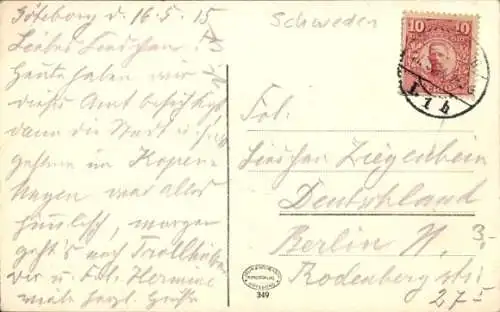 Göteborg d. 16.5.15
Liebes Lieschen!
Heute haben wir
dieses Amt besichtigt
dann die Stadt u.
gestern in Kopen-
hagen war alles
, morgen
geht's nach Trollhättan
Dir u. Frl. Hermine
viele herzl. Grüße
Schweden
10 10
Frl.
Lieschen Ziegenbein
Deutschland
Berlin N. 3,-
Rodenberg str.
27 I
349